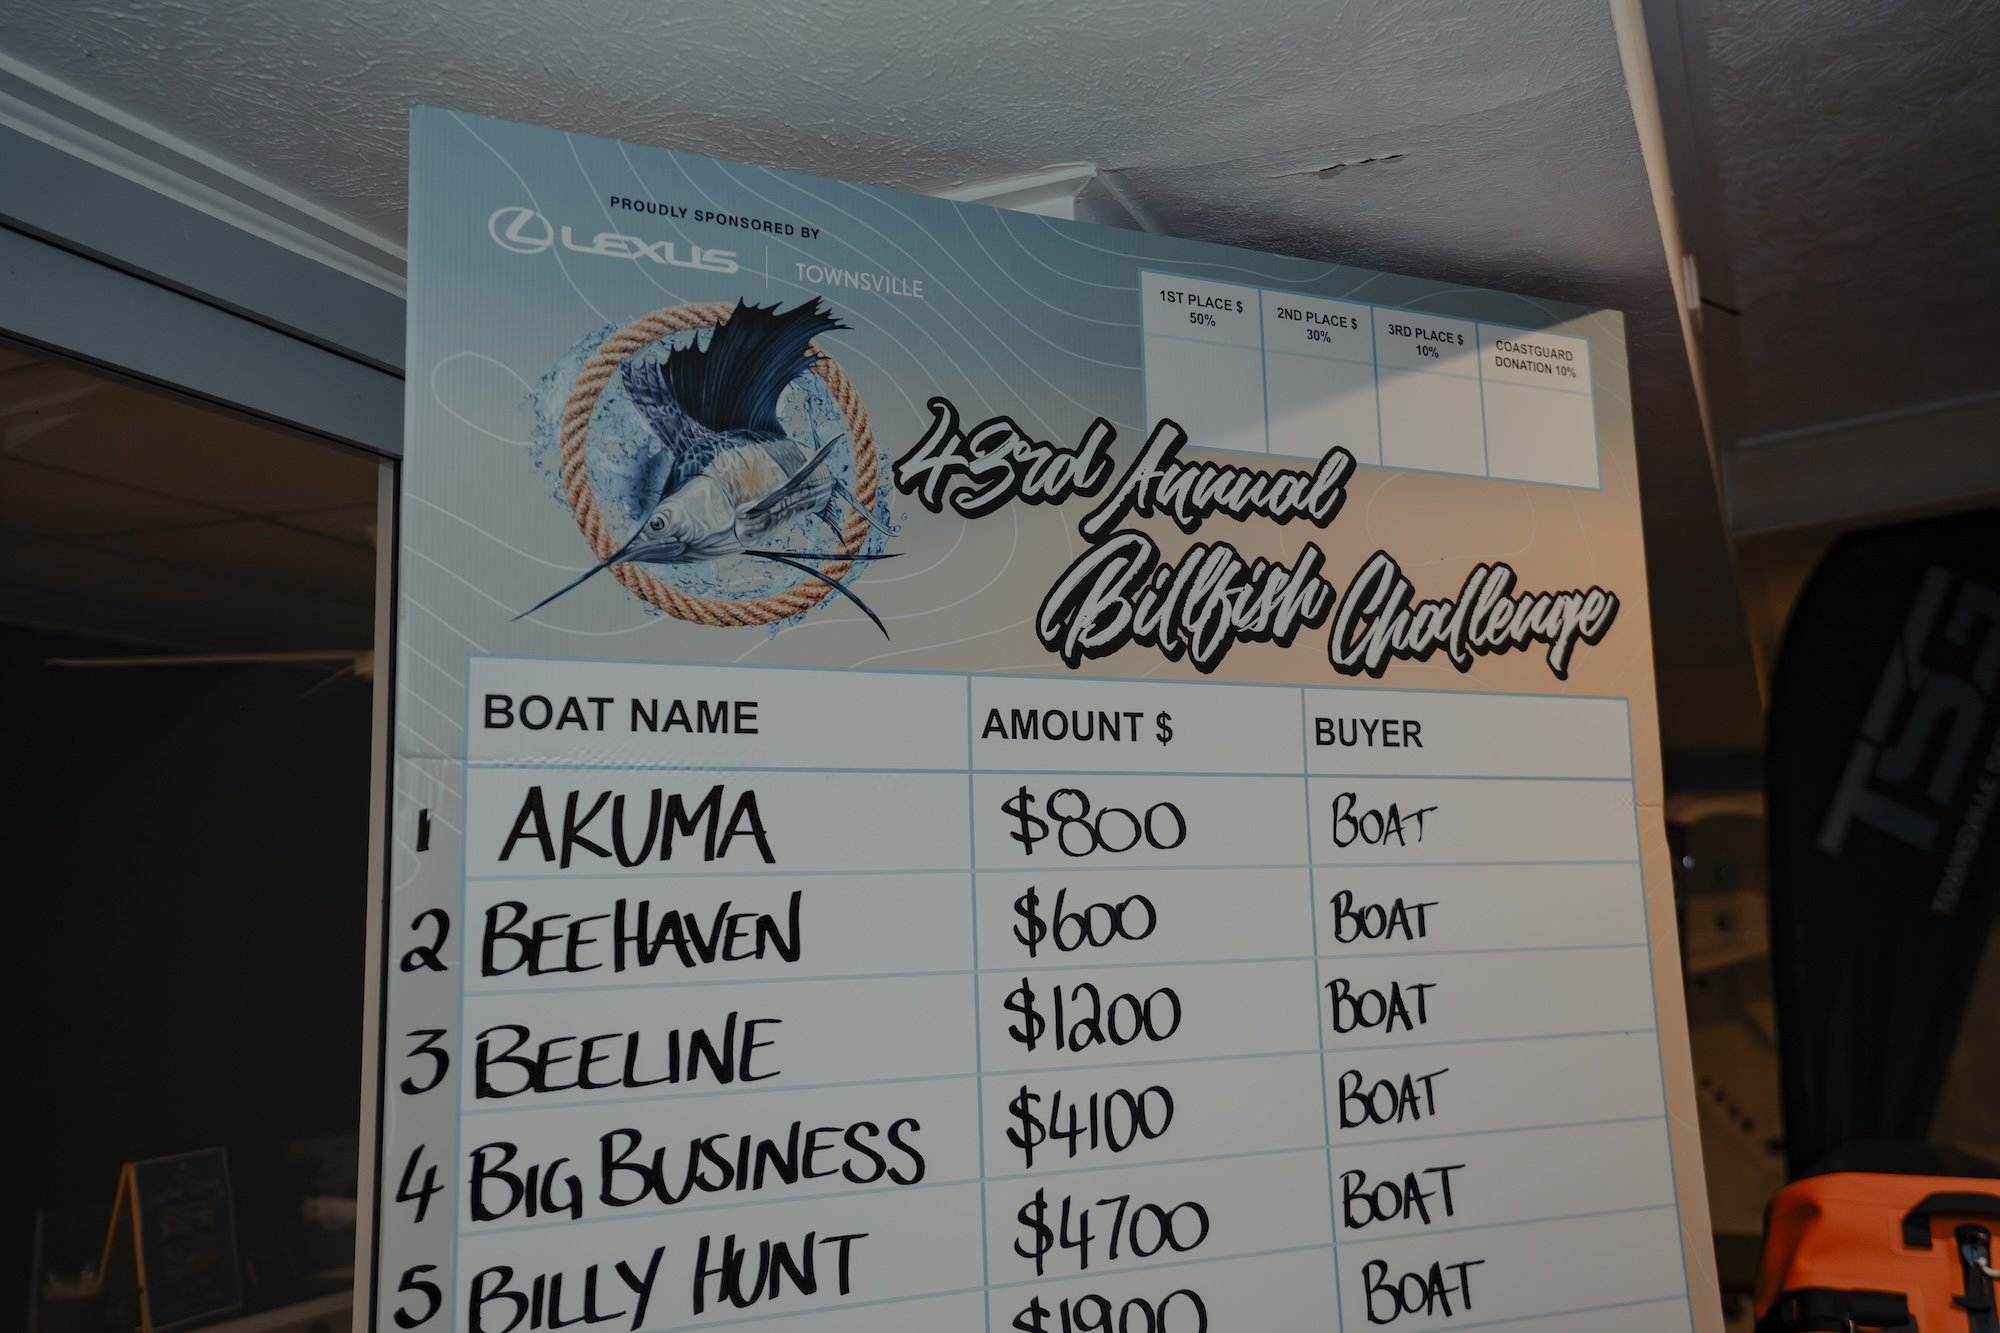 PROUDLY SPONSORED BY
LEXUS TOWNSVILLE
1ST PLACE $ 50%
2ND PLACE $ 30%
3RD PLACE $ 10%
COASTGUARD DONATION 10%
43rd Annual
Billfish Challenge
BOAT NAME AMOUNT $ BUYER
1 AKUMA $800 BOAT
2 BEEHAVEN $600 BOAT
3 BEELINE $1200 BOAT
4 BIG BUSINESS $4100 BOAT
5 BILLY HUNT $4700 BOAT
$1900 BOAT
TOWNSVILLE